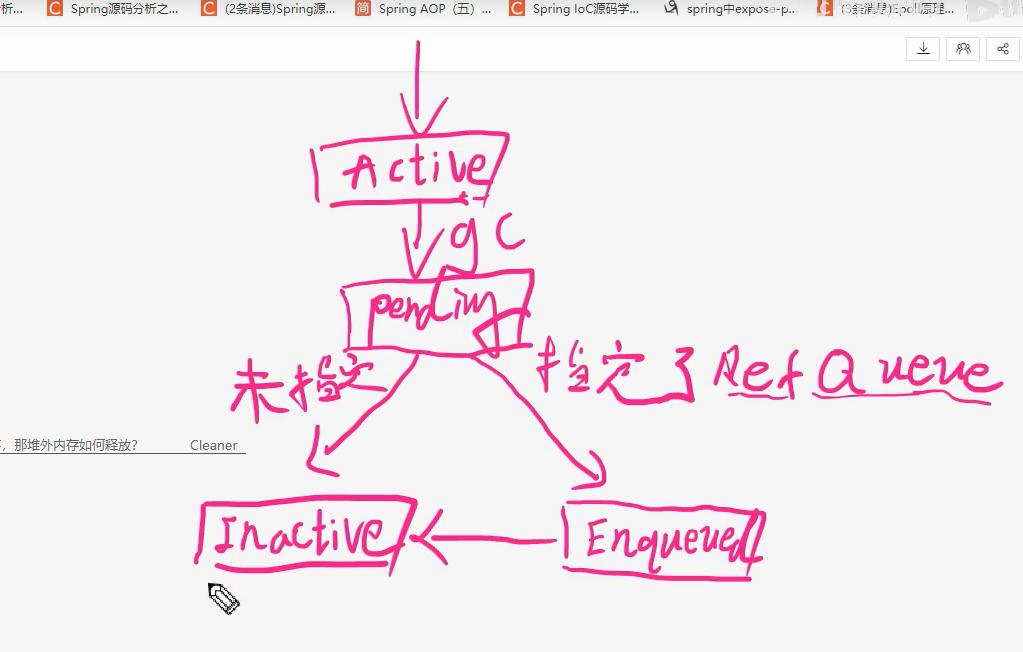 析...
Spring源码分析之...
(2条消息)Spring源...
Spring AOP（五）...
Spring IoC源码学...
spring中expose-p...
(3条消息)Epoll原理...
Active
gc
pending
未指定
指定了RefQueue
，那堆外内存如何释放？
Cleaner
Inactive
Enqueued